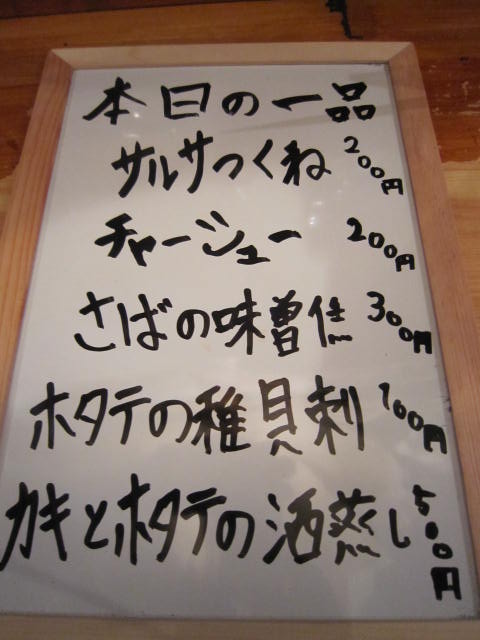 本日の一品
サルサつくね 200円
チャーシュー 200円
さばの味噌煮 300円
ホタテの稚貝刺 100円
カキとホタテの酒蒸し 500円